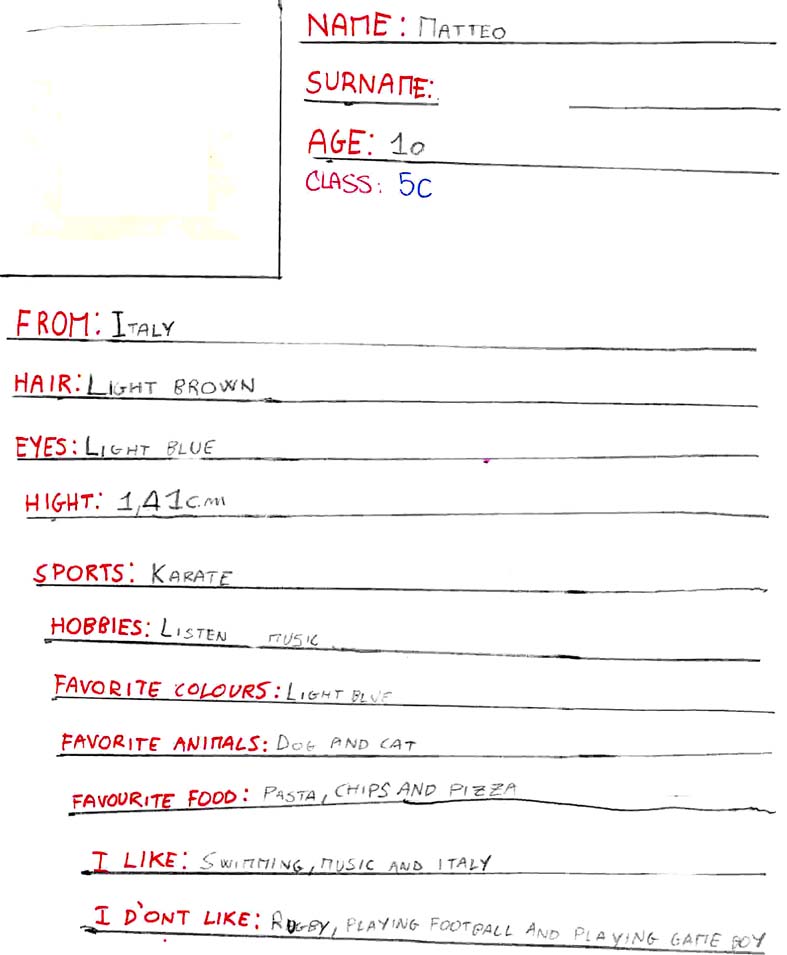 NAME: MATTEO
SURNAME:
AGE: 10
CLASS: 5C
FROM: ITALY
HAIR: LIGHT BROWN
EYES: LIGHT BLUE
HIGHT: 1,41cm
SPORTS: KARATE
HOBBIES: LISTEN MUSIC
FAVORITE COLOURS: LIGHT BLUE
FAVORITE ANIMALS: DOG AND CAT
FAVOURITE FOOD: PASTA, CHIPS AND PIZZA
I LIKE: SWIMMING, MUSIC AND ITALY
I D'ONT LIKE: RUGBY, PLAYING FOOTBALL AND PLAYING GAME BOY